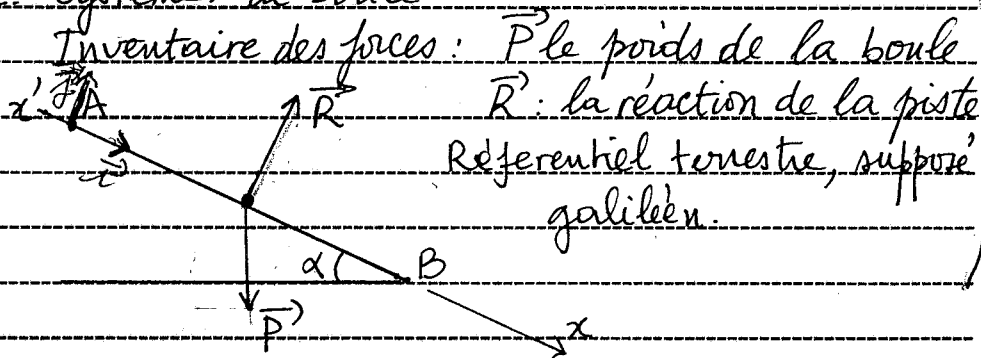 Inventaire des forces : P⃗ le poids de la boule
R⃗ : la réaction de la piste
Référentiel terrestre, supposé
galiléen.
x' j⃗ A
i⃗
R⃗
α B
P⃗
x